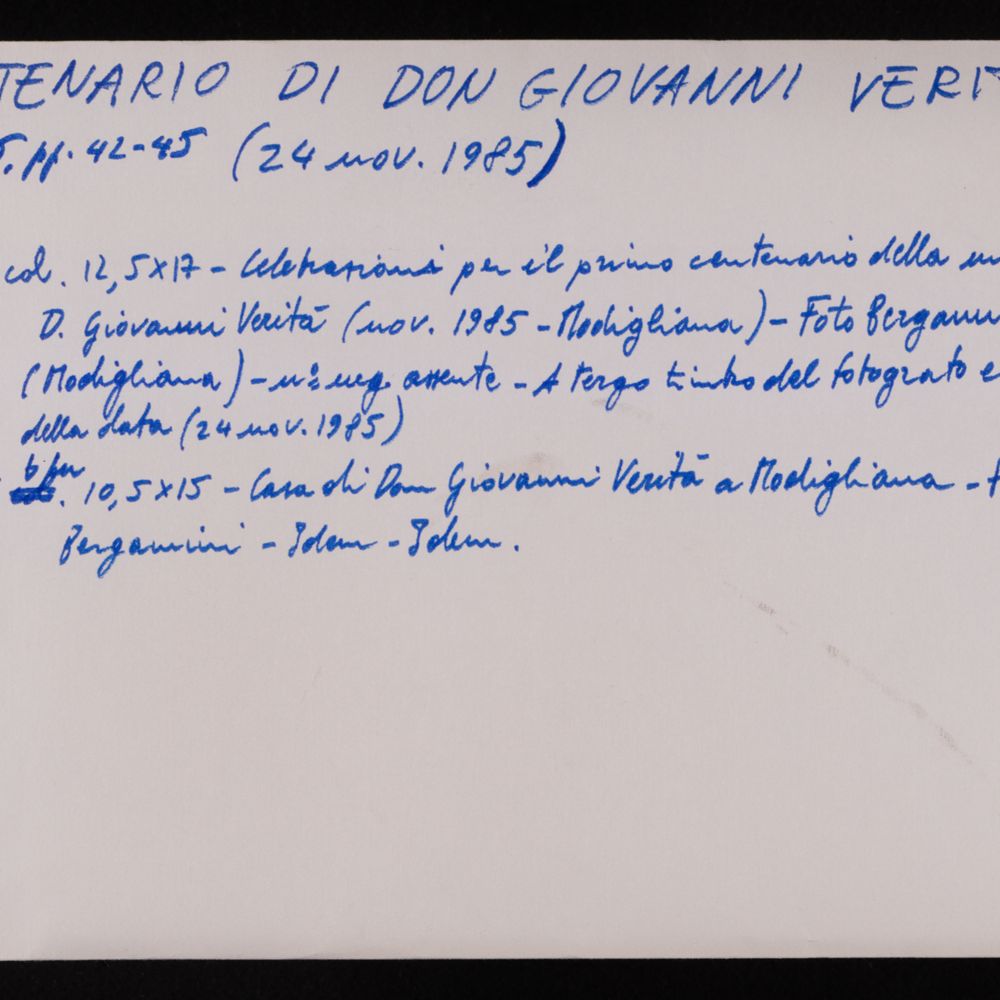 TENARIO DI DON GIOVANNI VERIT
5, pp. 42-45 (24 nov. 1985)
col. 12,5x17 - Celebrazioni per il primo centenario della m
D. Giovanni Verità (nov. 1985 - Modigliana) - Foto Bergamin
(Modigliana) - n° neg. assente - A tergo timbro del fotografo e
della data (24 nov. 1985)
10,5x15 - Casa di Don Giovanni Verità a Modigliana - F
Bergamini - Idem - Idem.